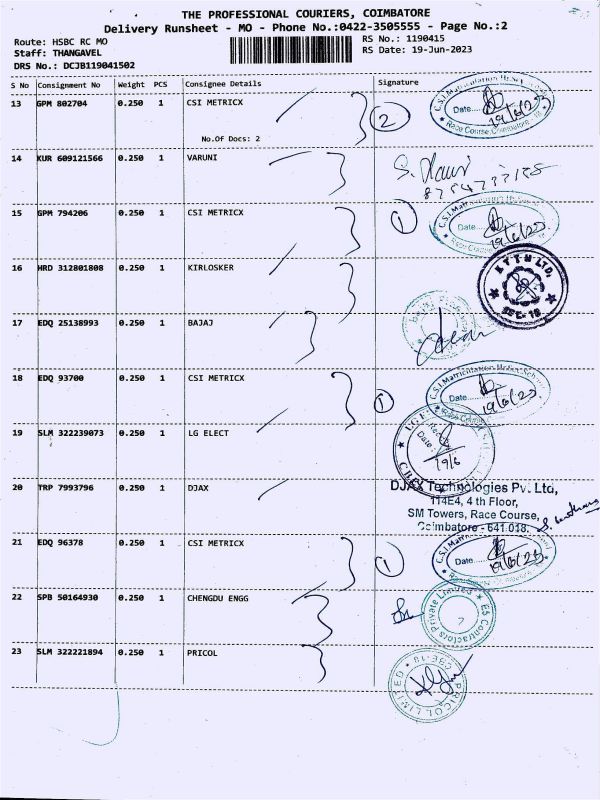 THE PROFESSIONAL COURIERS, COIMBATORE
Delivery Runsheet - MO - Phone No.:0422-3505555 - Page No.:2
Route: HSBC RC MO
RS No.: 1190415
Staff: THANGAVEL
RS Date: 19-Jun-2023
DRS No.: DCJB119041502
S No Consignment No Weight PCS Consignee Details Signature
13 GPM 802704 0.250 1 CSI METRICX
No.Of Docs: 2
2
Date
19/6/23
Race Course, Coimbatore - 18
14 KUR 609121566 0.250 1 VARUNI
15 GPM 794206 0.250 1 CSI METRICX
1
Date
19/6/23
16 HRD 312801808 0.250 1 KIRLOSKER
17 EDQ 25138993 0.250 1 BAJAJ
18 EDQ 93700 0.250 1 CSI METRICX
1
C.S.I. Matriculation Hr. Sec. School
Date
19/6/23
19 SLM 322239073 0.250 1 LG ELECT
Date:
19/6
20 TRP 7993796 0.250 1 DJAX
DJAX Technologies Pvt. Ltd,
114E4, 4 th Floor,
SM Towers, Race Course,
Coimbatore - 641 018.
21 EDQ 96378 0.250 1 CSI METRICX
1
Date
19/6/23
22 SPB 50164930 0.250 1 CHENGDU ENGG
Contractors Private Limited
23 SLM 322221894 0.250 1 PRICOL
PRICOL LIMITED
CBE-18